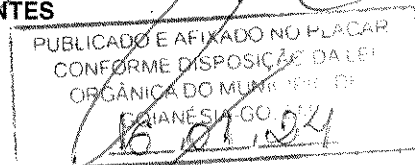 NTES
PUBLICADO E AFIXADO NO PLACAR
CONFORME DISPOSIÇÃO DA LEI
ORGÂNICA DO MUNICIPIO DE
GOIANÉSIA-GO.
16 01 24